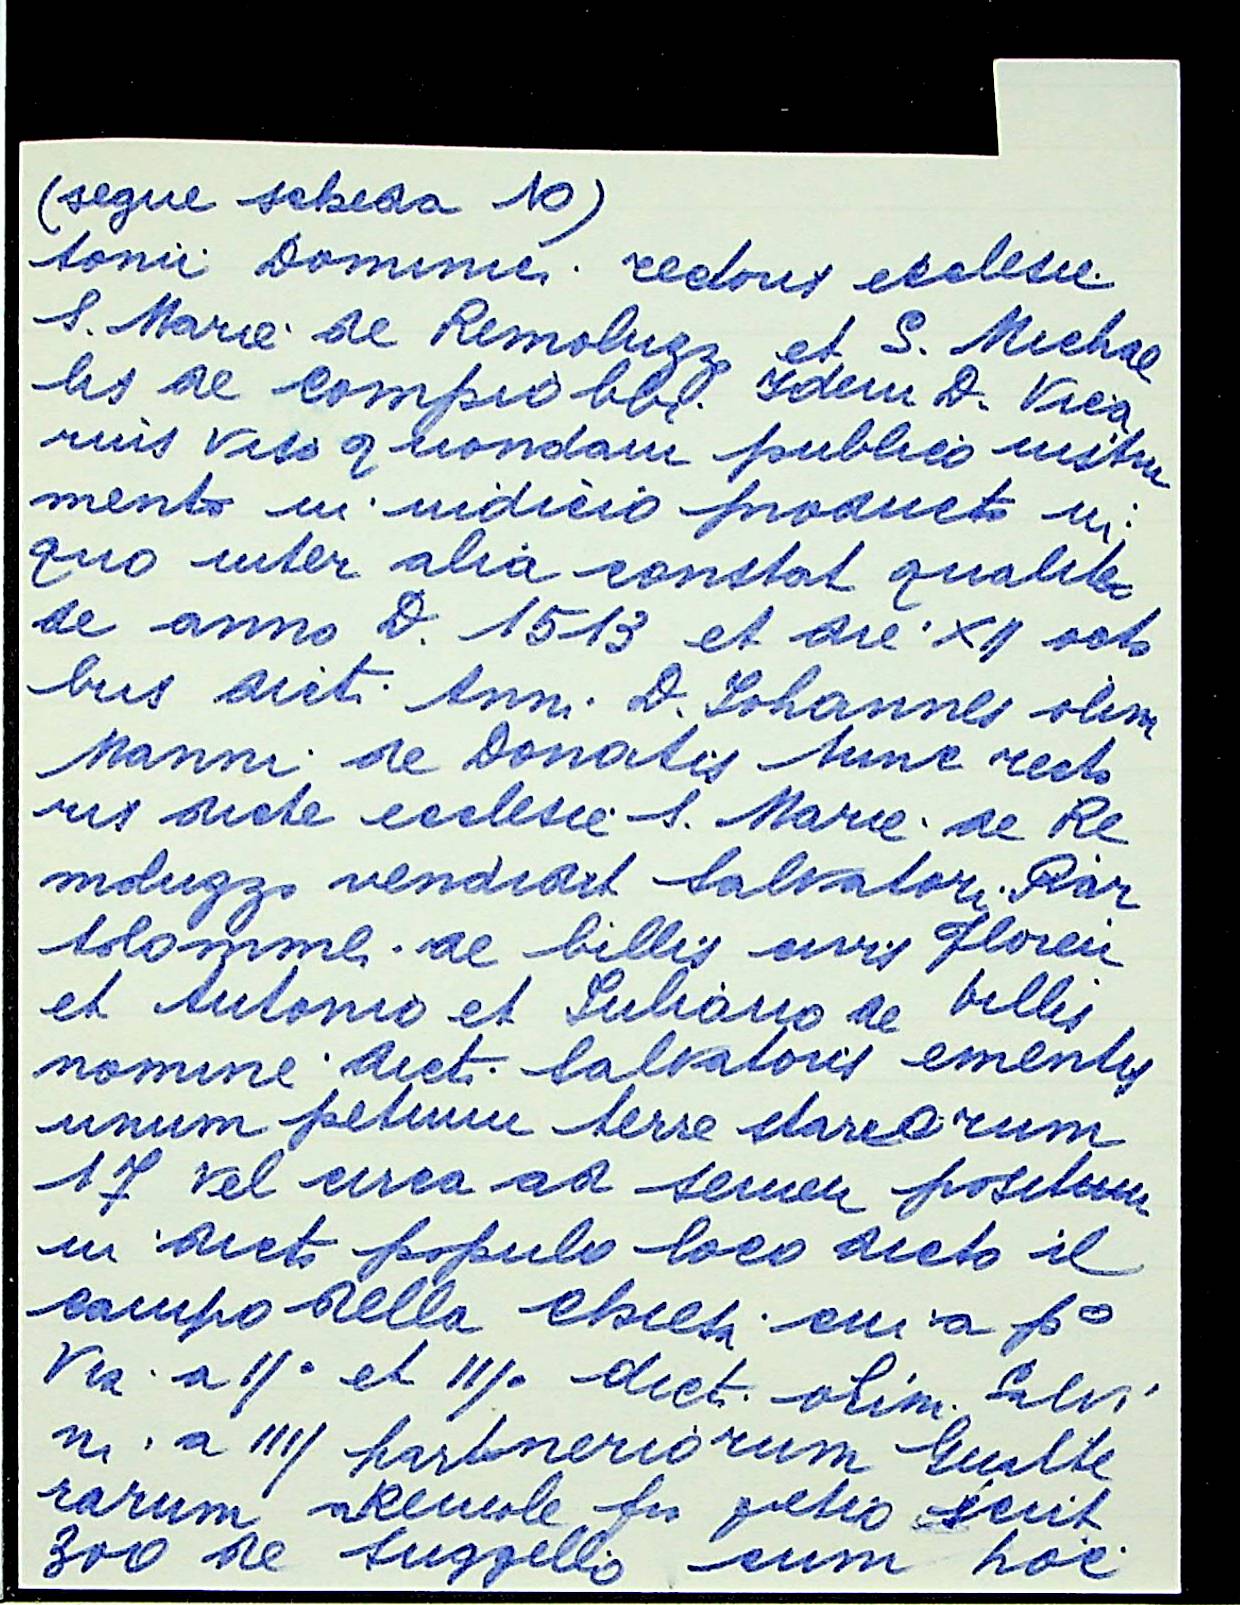 (segue scheda 10)
tonii Dominici rectoris ecclesie
S. Marie de Remoluzzo et S. Michae
lis de Compiobbi. Idem D. Vica
rius viso quondam publico instru
mento in iudicio producto in
quo inter alia constat qualiter
de anno D. 1513 et die XII octo
bris dicti Anni D. Johannes olim
Manni de Donatis tunc recto
ris dicte ecclesie S. Marie de Re
moluzzo vendidit Salvatori Bar
tolommei de billis civis Floren
et Antonio et Juliano de billis
nomine dicti Salvatoris ementis
unum petium terre stariorum
17 vel circa ad semen positum
in dicto populo loco dicto il
campo della chiesa cui a pº
Via a IIº et IIIº dict. olim Salvi
ni a IIII Gualte
rarum fu petro scrit
zoo de Suggello cum hoc